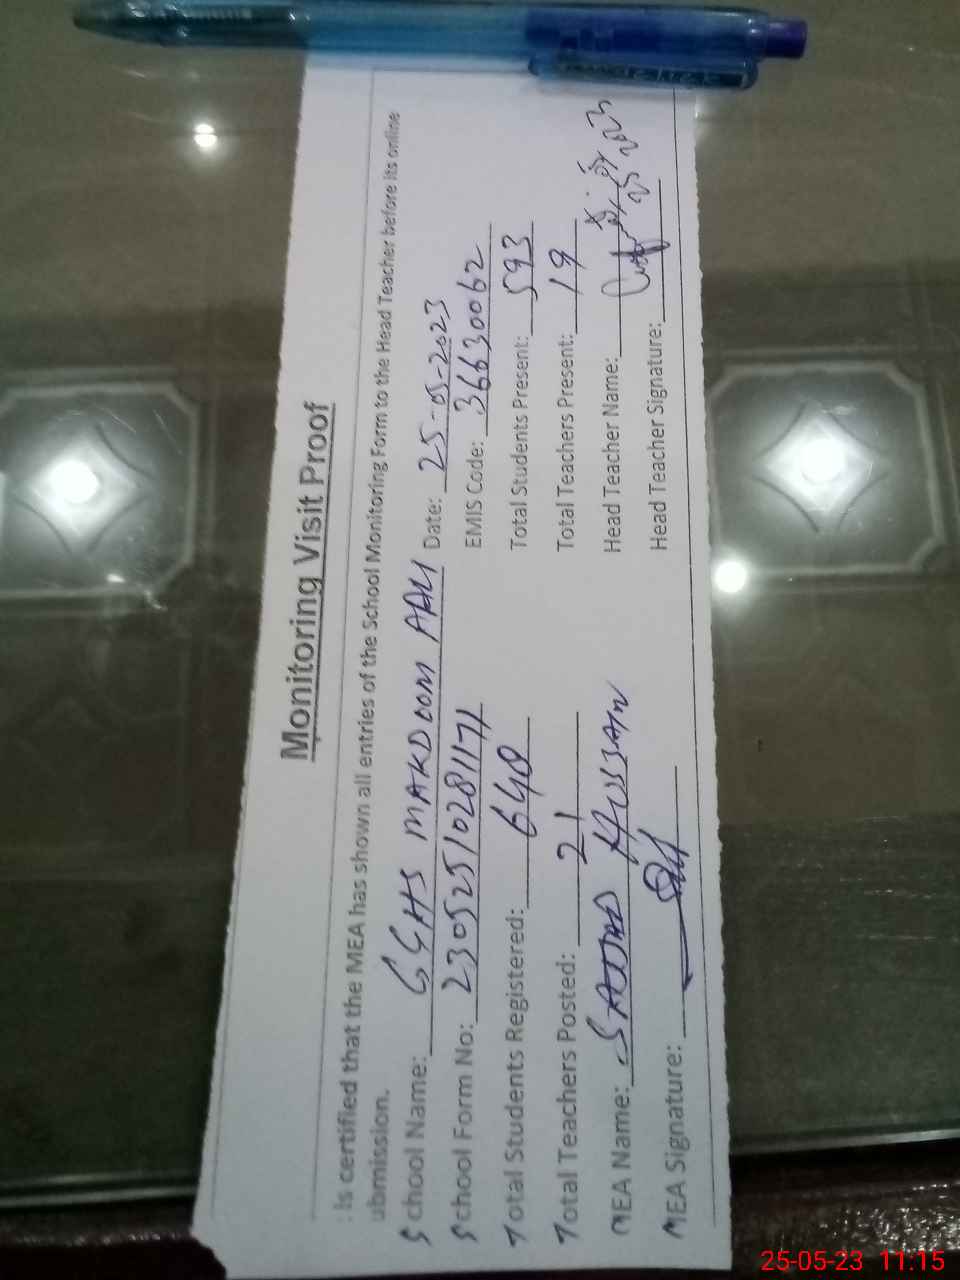 Monitoring Visit Proof
: Is certified that the MEA has shown all entries of the School Monitoring Form to the Head Teacher before its online
ubmission.
School Name: GGHS MAKDOOM AALI Date: 25-05-2023
School Form No: 23052510281171 EMIS Code: 36630062
Total Students Registered: 648 Total Students Present: 593
Total Teachers Posted: 21 Total Teachers Present: 19
MEA Name: SAJJAD HUSSAIN Head Teacher Name:
MEA Signature: Head Teacher Signature: 25 2023
25-05-23 11:15